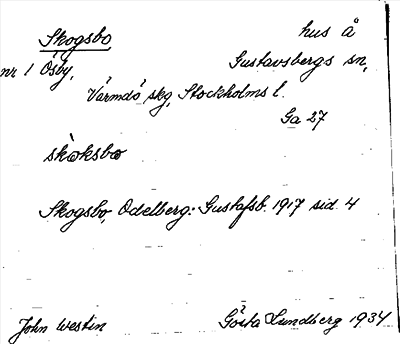 Skogsbo hus å
nr 1 Ösby, Gustavsbergs sn,
Värmdö skg, Stockholms l.
Ga 27
skòksbω
Skogsbo, Odelberg: Gustafsb. 1917 sid. 4
John Westin Gösta Lundberg 1934